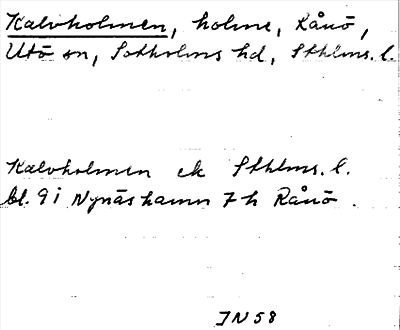 Kalvholmen, holme, Rånö,
Utö sn, Sotholms hd, Sthlms. l.
Kalvholmen ek Sthlms. l.
bl. 9i Nynäshamn 7h Rånö.
JN58